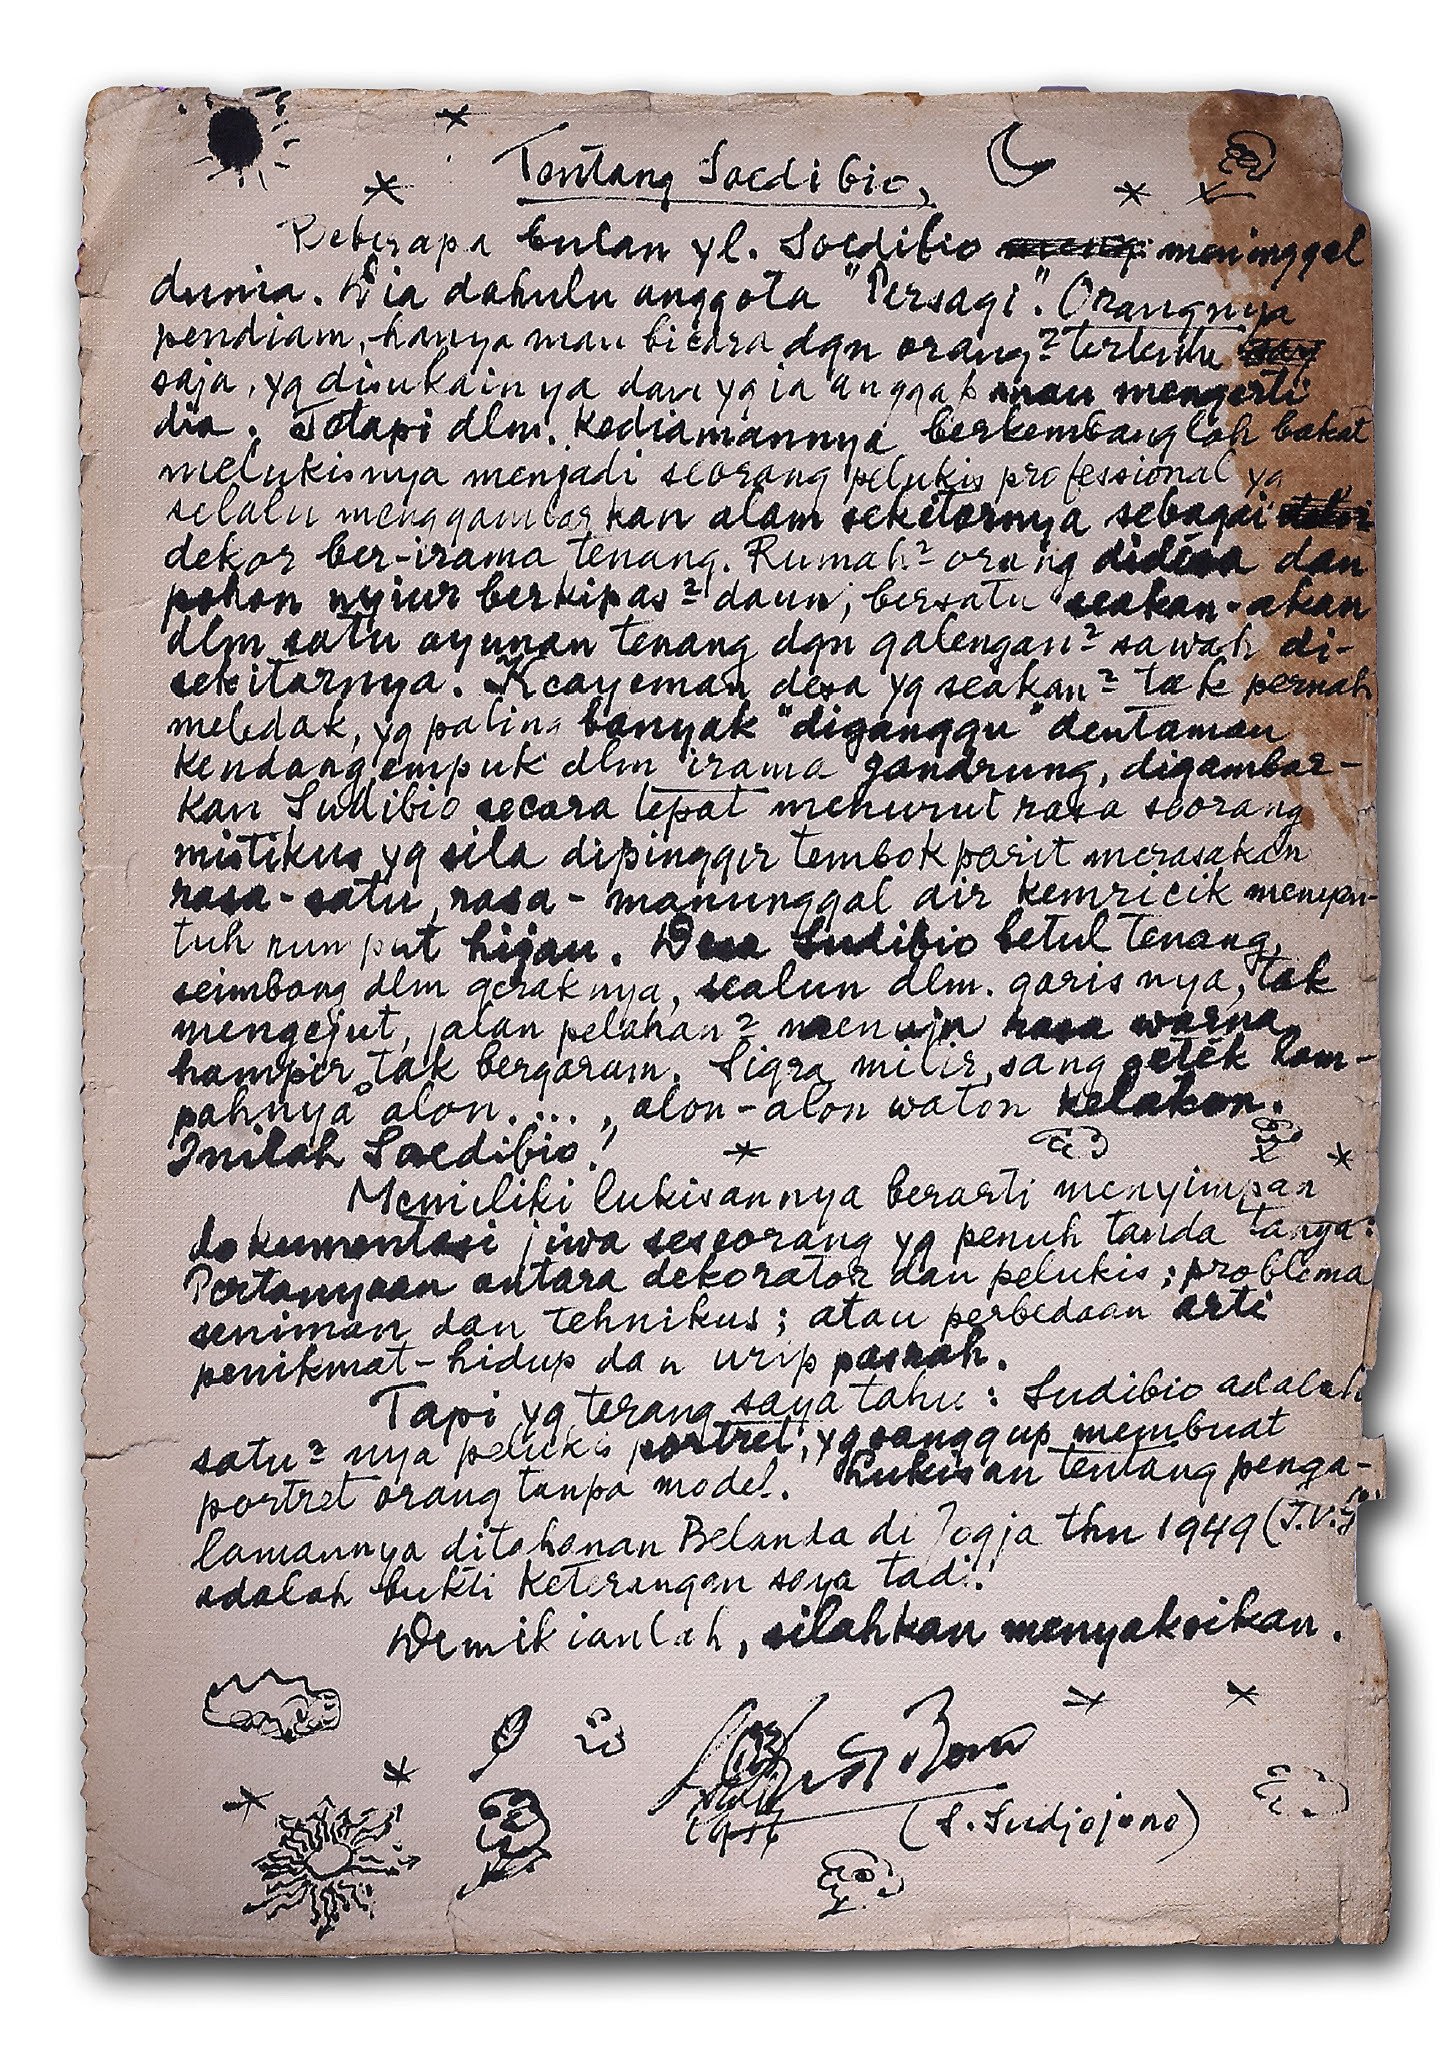 Tentang Soedibio,
Beberapa bulan yl. Soedibio meninggal
dunia. Dia dahulu anggota "Persagi". Orangnya
pendiam, hanya mau bicara dgn orang² tertentu
saja, yg disukainya dan yg ia anggap mau mengerti
dia. Tetapi dlm. kediamannya berkembanglah bakat
melukisnya menjadi seorang pelukis professional yg
selalu menggambarkan alam sekitarnya sebagai
dekor ber-irama tenang. Rumah² orang didesa dan
pohon nyiur berkipas² daun, bersatu seakan-akan
dlm satu ayunan tenang dgn galengan² sawah di-
sekitarnya. Keayeman desa yg seakan² tak pernah
meledak, yg paling banyak "diganggu" dentaman
kendang empuk dlm irama gandrung, digambar-
kan Sudibio secara tepat menurut rasa seorang
mistikus yg sila dipinggir tembok parit merasakan
rasa-satu, rasa-manunggal air kemricik menyen-
tuh rumput hijau. Desa Sudibio betul tenang,
seimbang dlm geraknya, sealun dlm. garisnya, tak
mengejut, jalan pelahan² menuju rasa warna
hampir tak bergaram. Sigra milir, sang getek lam-
pahnya alon...., alon-alon waton kelakon.
Inilah Soedibio!
Memiliki lukisannya berarti menyimpan
dokumentasi jiwa seseorang yg penuh tanda tanya:
Pertanyaan antara dekorator dan pelukis; problema
seniman dan tehnikus; atau perbedaan arti
penikmat-hidup dan urip pasrah.
Tapi yg terang saya tahu: Sudibio adalah
satu²nya pelukis portret, yg sanggup membuat
portret orang tanpa model. Lukisan tentang penga-
lamannya ditahanan Belanda di Jogja thn 1949
adalah bukti keterangan saya tadi.
Demikianlah, silahkan menyaksikan.
(S. Sudjojono)